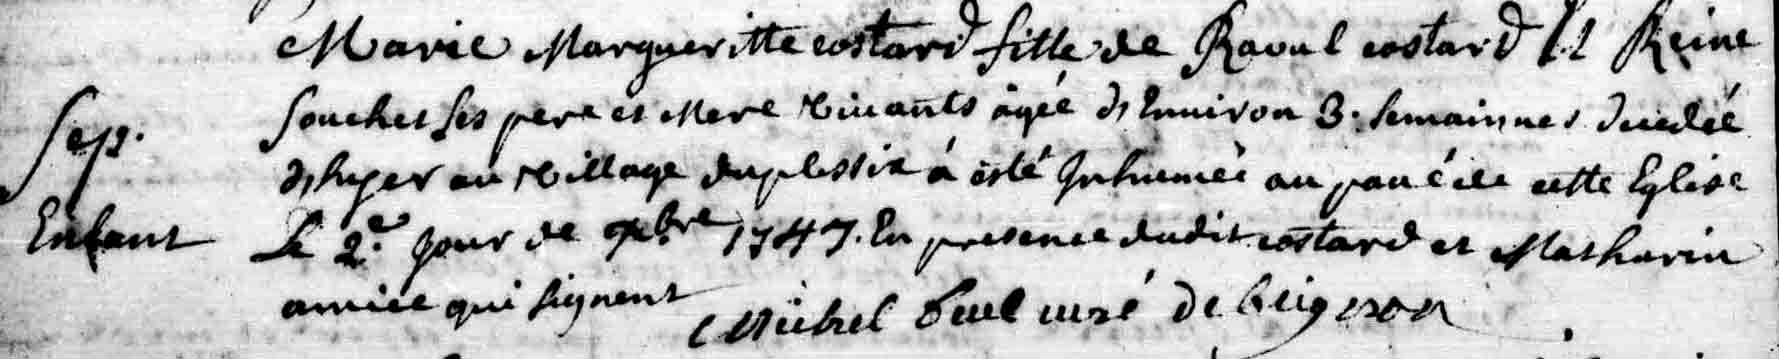 Marie Margueritte costard fille de Raoul costard et Reine
Sep. Souchet ses pere et Mere vivants âgée d'Environ 3. semainnes decedée
d'hyer au village duplessix á esté Inhumée au pavé de cette Eglise
Enfant Le 2.e jour de 7.bre 1747. En presence dudit costard et Matharin
amice qui signent Michel curé de beignon